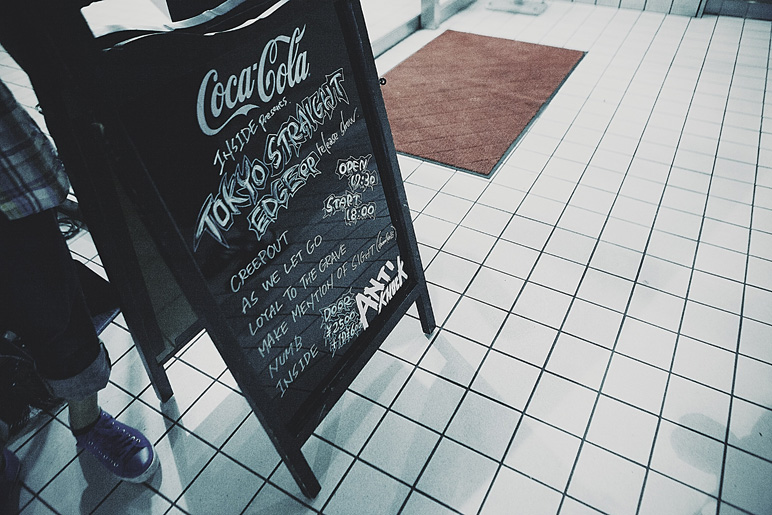 Coca-Cola
INSIDE Presents.
TOKYO STRAIGHT
EDGE EP release show.
OPEN
17:30
START
18:00
CREEPOUT
AS WE LET GO
LOYAL TO THE GRAVE
MAKE MENTION OF SIGHT
NUMB
INSIDE
DOOR
¥2500
ANTI
KNOCK